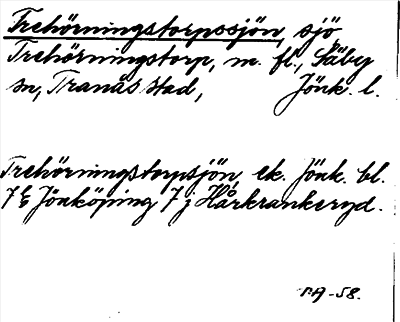 Trehörningstorpssjön, sjö
Trehörningstorp, m. fl., Säby
sn, Tranås stad, Jönk. l.
Trehörningstorpsjön, ek. Jönk. bl.
7 E Jönköping 7 j Hårkrankeryd.
P.A-58.